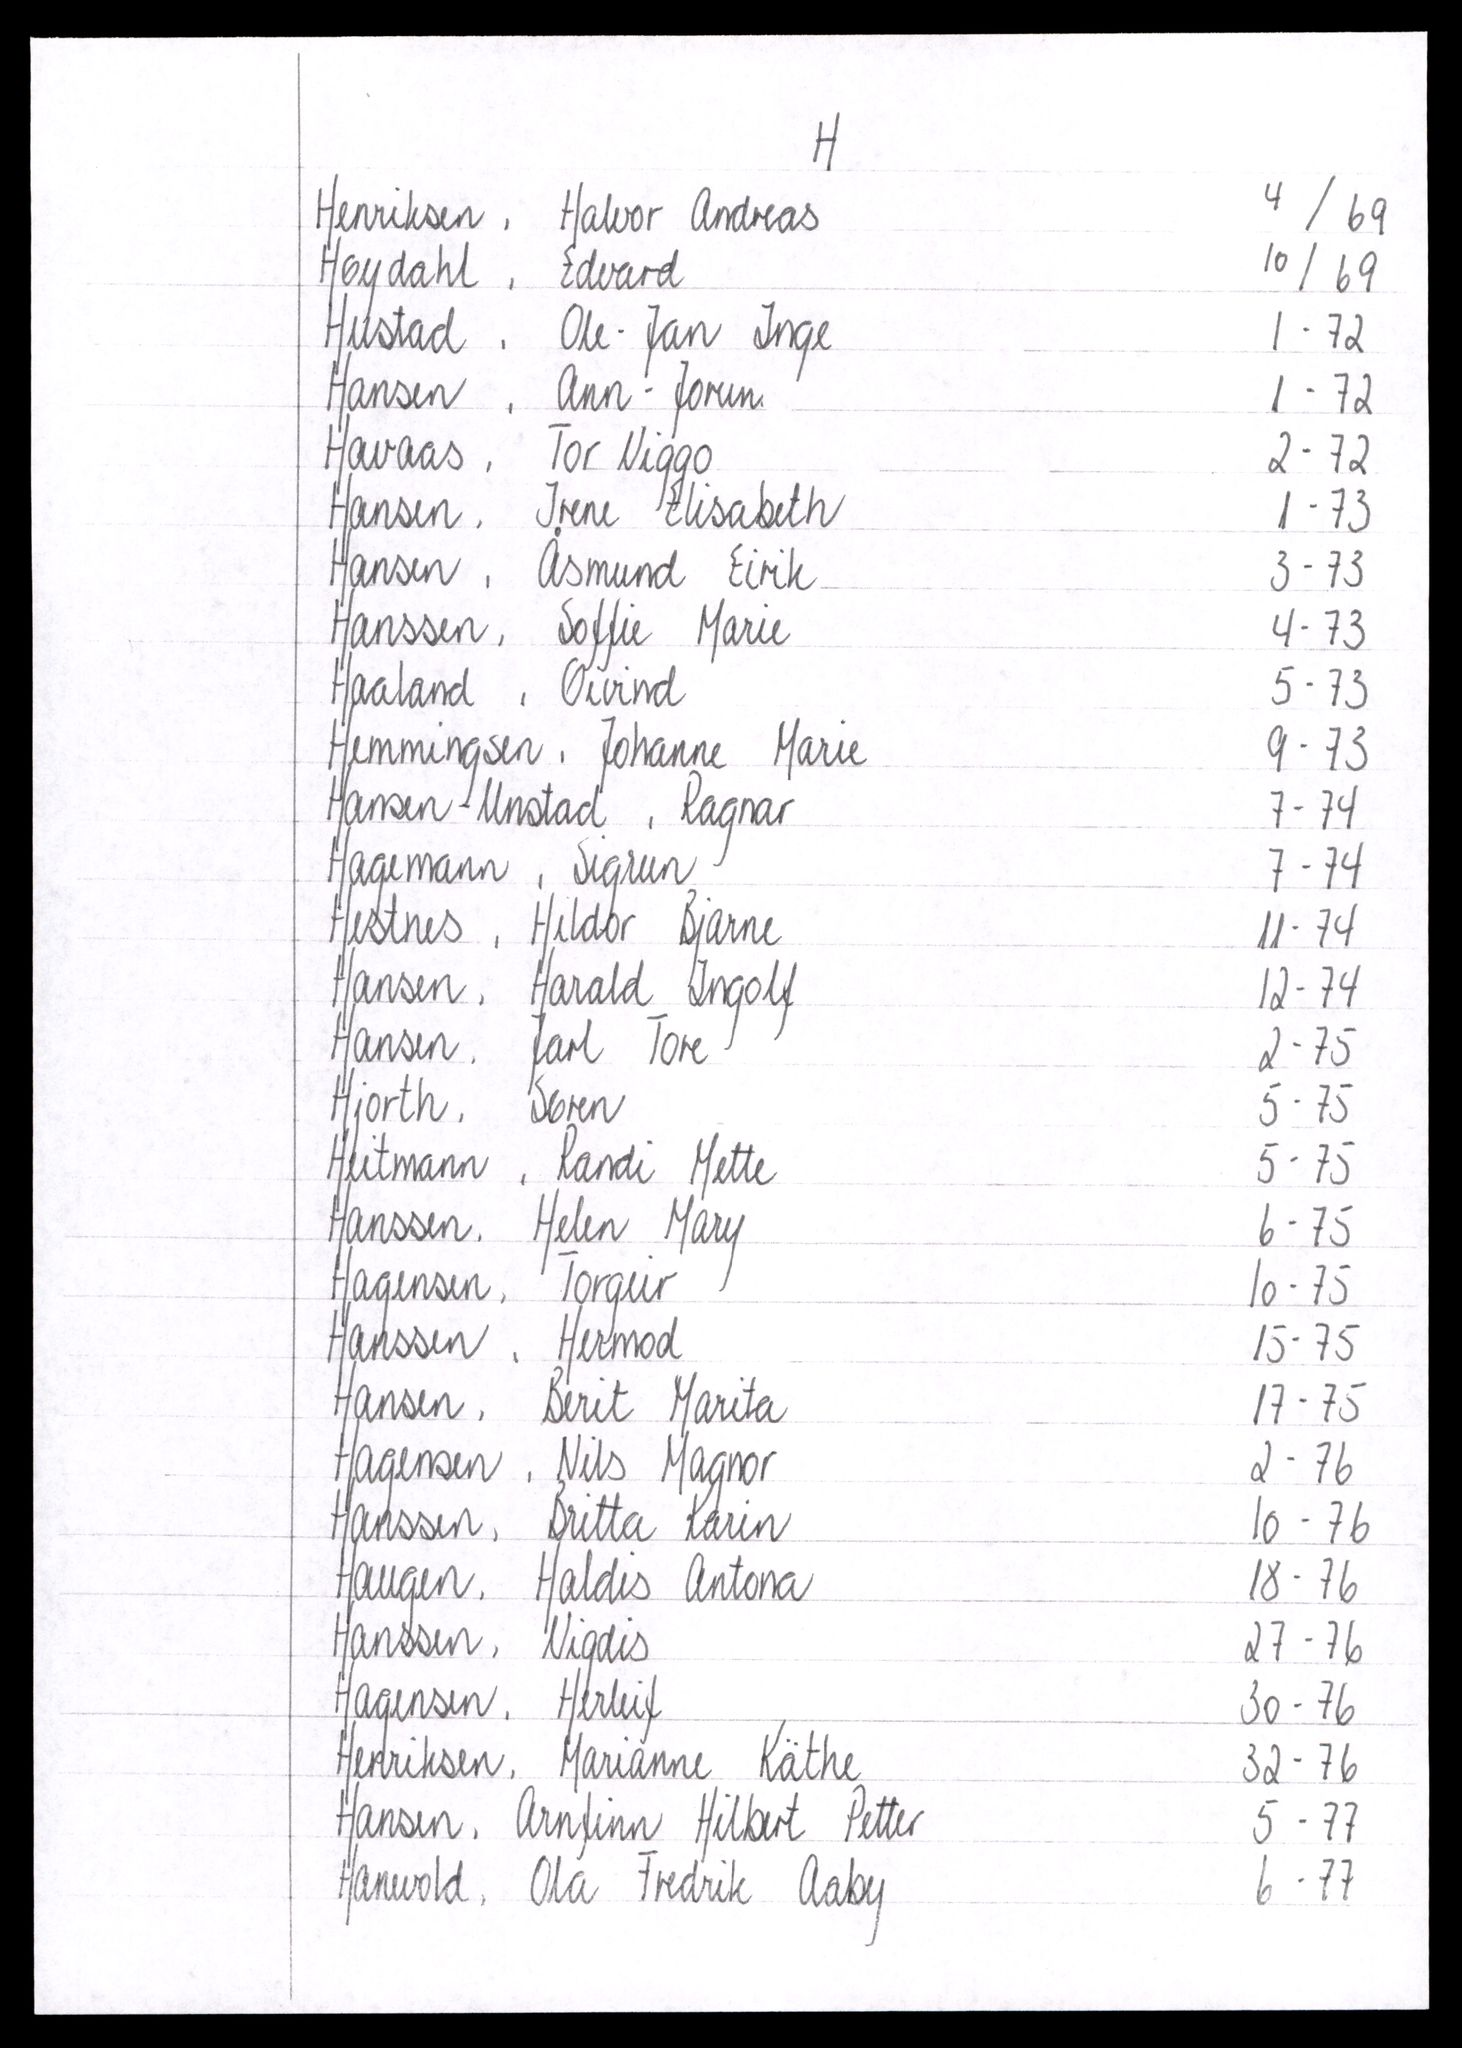 H
Henriksen, Halvor Andreas 4/69
Høydahl, Edvard 10/69
Hustad, Ole-Jan Inge 1-72
Hansen, Ann-Jorun 1-72
Havaas, Tor Viggo 2-72
Hansen, Irene Elisabeth 1-73
Hansen, Åsmund Eirik 3-73
Hanssen, Soffie Marie 4-73
Haaland, Øivind 5-73
Hemmingsen, Johanne Marie 9-73
Hansen-Unstad, Ragnar 7-74
Hagemann, Sigrun 7-74
Hestnes, Hildor Bjarne 11-74
Hansen, Harald Ingolf 12-74
Hansen, Jarl Tore 2-75
Hjorth, Søren 5-75
Heitmann, Randi Mette 5-75
Hanssen, Helen Mary 6-75
Hagensen, Torgeir 10-75
Hanssen, Hermod 15-75
Hansen, Berit Marita 17-75
Hagensen, Nils Magnor 2-76
Hanssen, Britta Karin 10-76
Haugen, Haldis Antona 18-76
Hanssen, Vigdis 27-76
Hagensen, Herleif 30-76
Henriksen, Marianne Käthe 32-76
Hansen, Arnfinn Hilbert Petter 5-77
Hanevold, Ola Fredrik Aaby 6-77